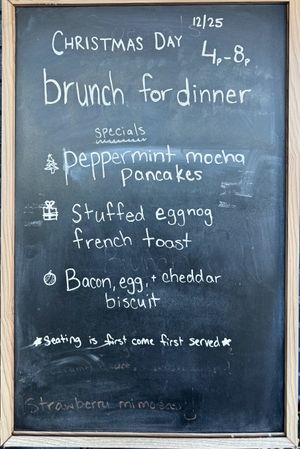 12/25
CHRISTMAS DAY 4p-8p
brunch for dinner
specials
peppermint mocha
pancakes
Stuffed eggnog
french toast
Bacon, egg, + cheddar
biscuit
★Seating is first come first served★
Strawberry mimosas